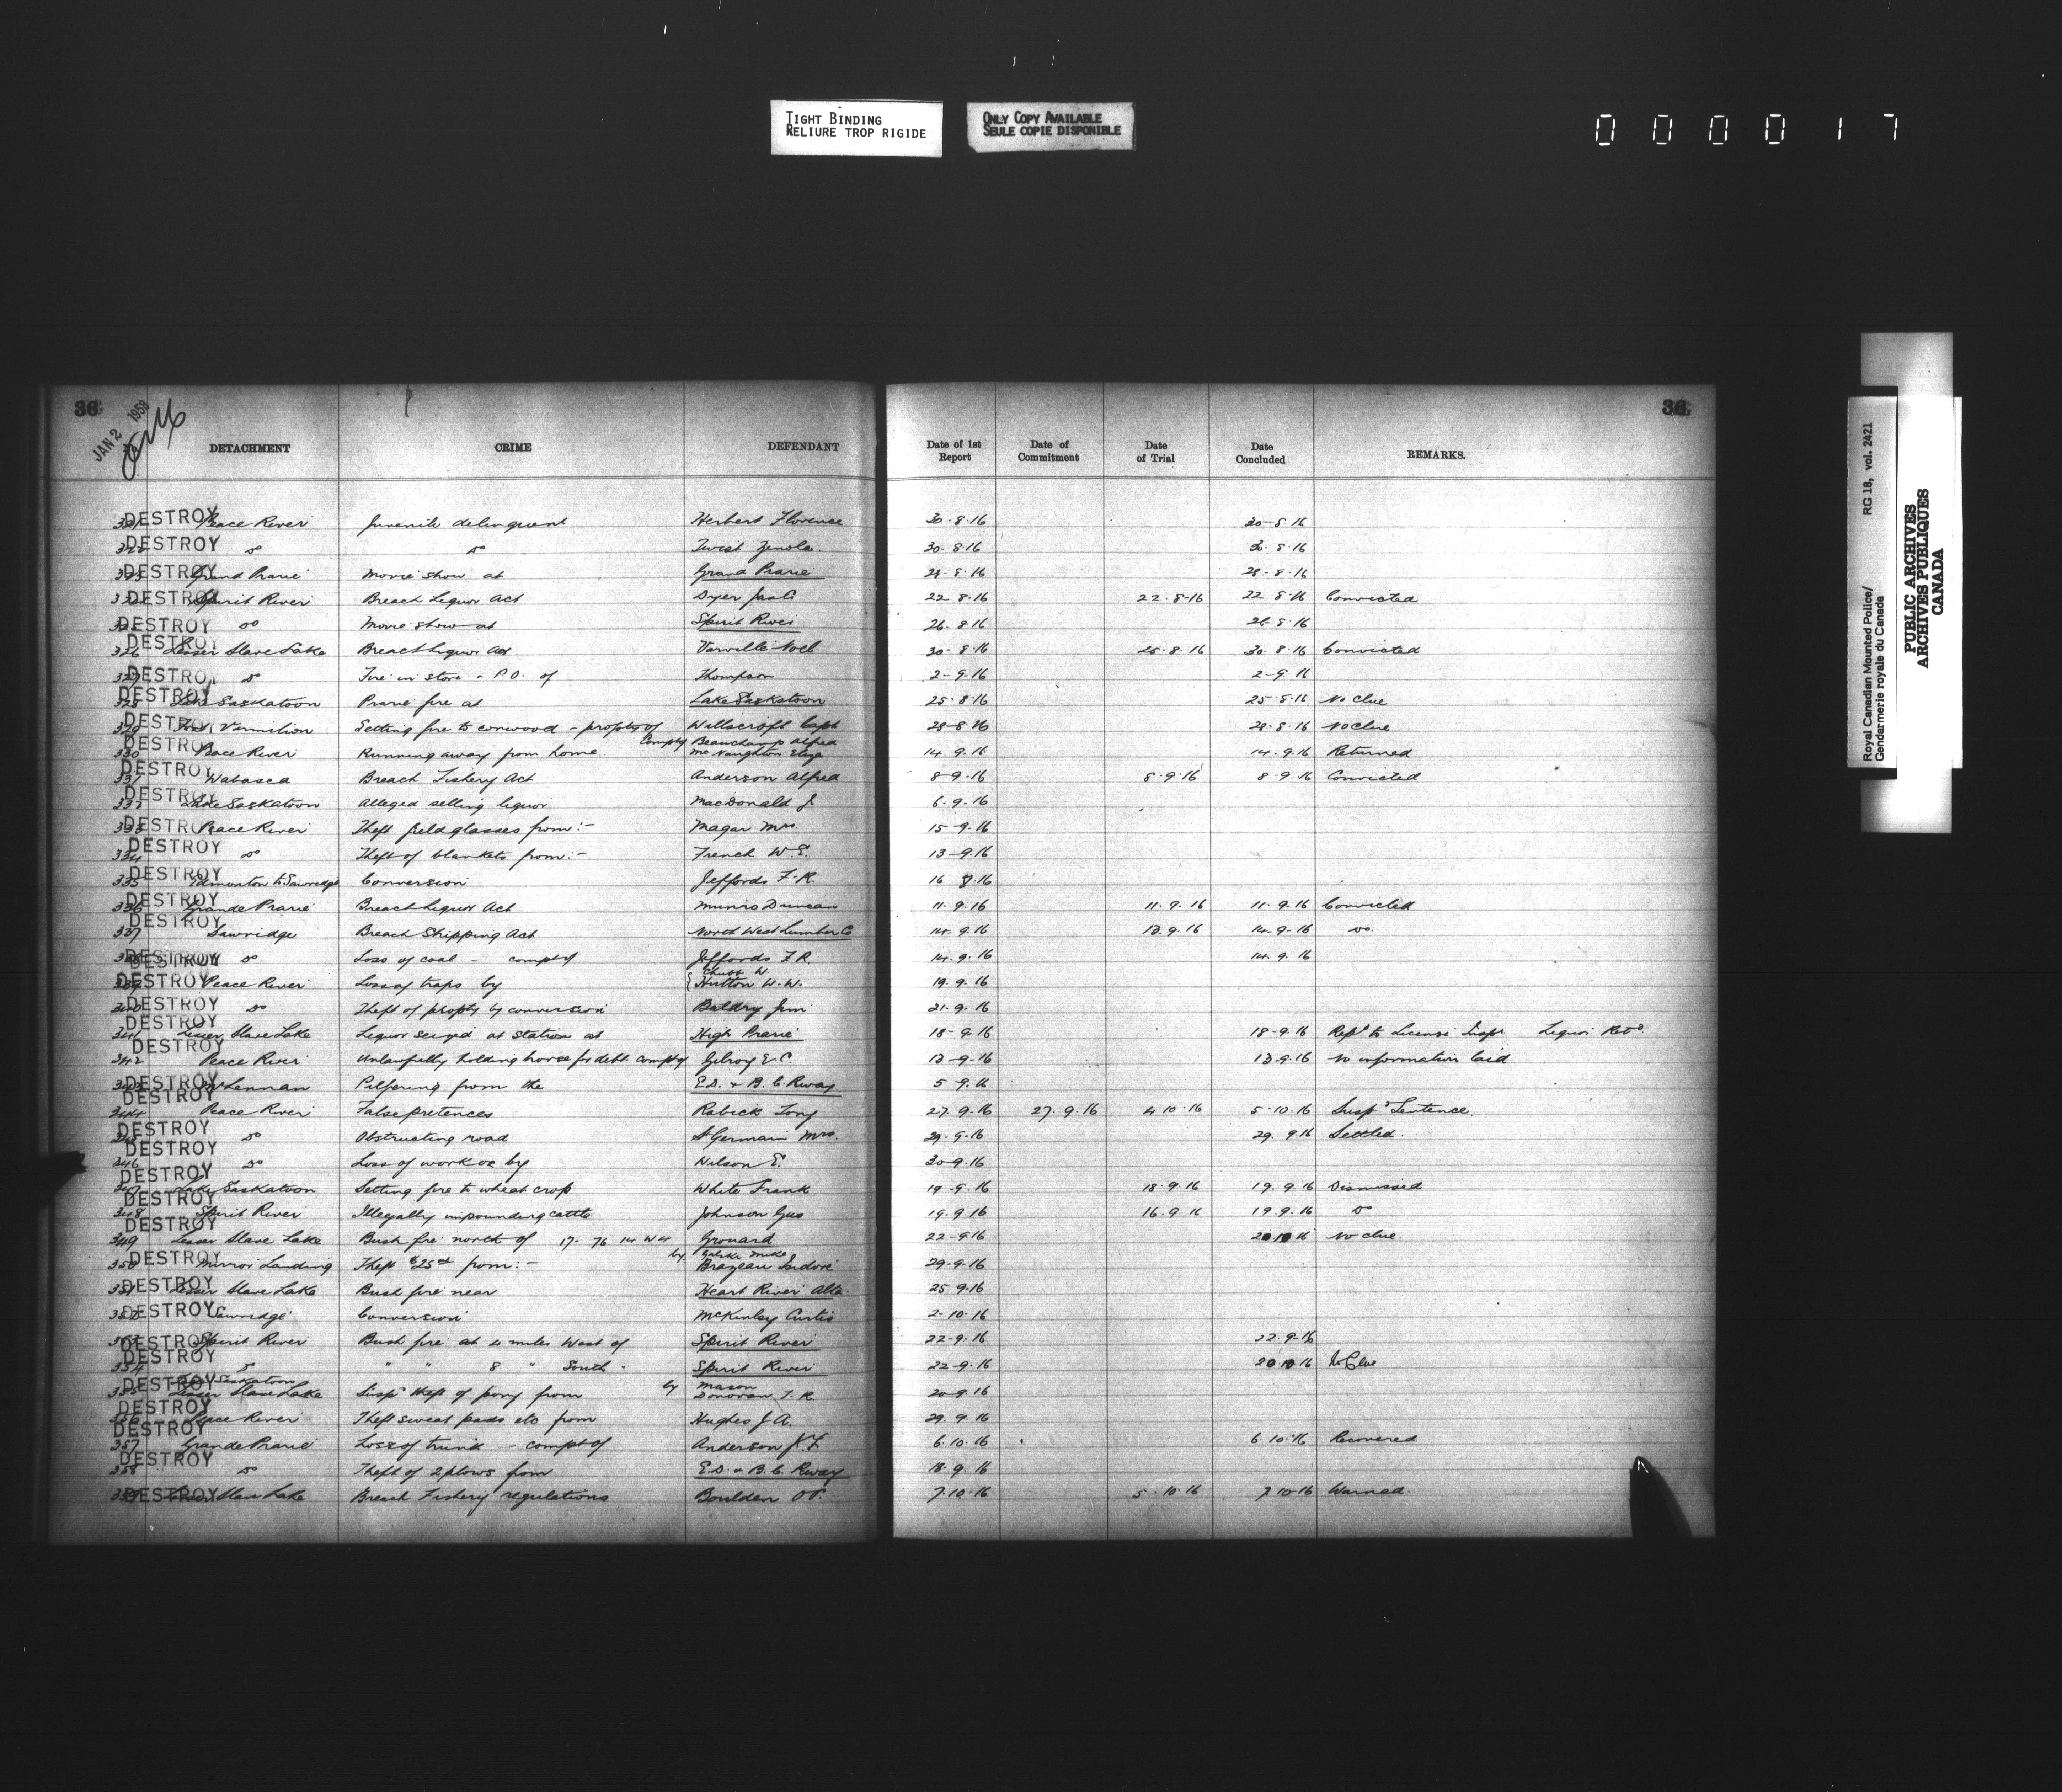 TIGHT BINDING
RELIURE TROP RIGIDE
ONLY COPY AVAILABLE
SEULE COPIE DISPONIBLE
000017
Royal Canadian Mounted Police/ RG 18, vol. 2421
Gendarmerie royale du Canada
PUBLIC ARCHIVES
ARCHIVES PUBLIQUES
CANADA
36 36
JAN 2 1958
DETACHMENT CRIME DEFENDANT Date of 1st Report Date of Commitment Date of Trial Date Concluded REMARKS.
321 DESTROY Peace River Juvenile delinquent Herbert Florence 30-8-16 30-8-16
322 DESTROY do do Twist 30-8-16 30-8-16
323 DESTROY Grand Prarie Movie show at Grand Prarie 28-8-16
324 DESTROY Spirit River Breach Liquor Act Dyer 22 8-16 22-8-16 22 8 16 Convicted
325 DESTROY do Movie show at Spirit River 26-8-16 26-8-16
326 DESTROY Lesser Slave Lake Breach Liquor Act Varville Noel 30-8-16 25.8.16 30.8.16 Convicted
327 DESTROY do Fire in store & P.O. of Thompson 2-9-16 2-9-16
328 DESTROY Lake Saskatoon Prarie fire at Lake Saskatoon 25-8-16 25-8-16 No Clue
329 DESTROY Fort Vermilion Setting fire to corwood - propty of Willscroft Capt 28-8-16 28.8.16 No Clue
330 DESTROY Peace River Running away from home Complt Beauchamp Alfred McNaughton Eliza 14 9.16 14.9.16 Returned
331 DESTROY Wabasca Breach Fishery Act Anderson Alfred 8-9-16 8.9.16 8-9-16 Convicted
332 DESTROY Lake Saskatoon Alleged selling liquor MacDonald J 6-9-16
333 DESTROY Peace River Theft field glasses from:- Magar Mrs. 15-9-16
334 DESTROY do Theft of blankets from:- French W.E. 13-9-16
335 DESTROY Edmonton to Sawridge Conversion Jeffords F.R. 16 16
336 DESTROY Grande Prarie Breach Liquor Act Munro Duncan 11.9.16 11.9.16 11.9.16 Convicted
337 DESTROY Sawridge Breach Shipping Act North West Lumber Co 14.9.16 13.9.16 14-9-16 do.
338 DESTROY do Loss of coal - complt of Jeffords F.R. 14.9.16 14.9.16
339 DESTROY Peace River Loss of traps by { W. Hutton W.W. 19.9.16
340 DESTROY do Theft of propty by conversion Baldry Jim 21.9.16
341 DESTROY Lesser Slave Lake Liquor seized at Station at High Prarie 18-9-16 18-9.16 Repd to License Inspr Liquor Retd.
342 DESTROY Peace River Unlawfully holding horse for debt complt of Gilroy E.C. 13-9-16 13-9.16 No information laid
343 DESTROY McLennan Pilfering from the E.D. & B.C. Rway 5-9.16
344 DESTROY Peace River False pretences Rabick Tony 27.9.16 27.9.16 4 10.16 5-10.16 Suspd Sentence
345 DESTROY do Obstructing road St Germain Mrs. 29-9-16 29.9.16 Settled.
346 DESTROY do Loss of work ox by Wilson E. 30-9.16
347 DESTROY Lake Saskatoon Setting fire to wheat crop White Frank 19-9.16 18.9.16 19.9.16 Dismissed
348 DESTROY Spirit River Illegally impounding cattle Johnson Gus 19.9.16 16.9 16 19.9.16 do
349 DESTROY Lesser Slave Lake Bush fire north of 17-76 14 W4 Grouard 22-9-16 20 10 16 No clue.
350 DESTROY Mirror Landing Theft $25 from:- by Mike Brazeau Isidore 29-9-16
351 DESTROY Lesser Slave Lake Bush fire near Heart River Alta. 25 9.16
352 DESTROY Sawridge Conversion McKinley Curtis 2-10-16
353 DESTROY Spirit River Bush fire at 4 miles West of Spirit River 22-9.16 22.9-16
354 DESTROY do " " 8 " South " Spirit River 22-9.16 20 10 16 No Clue
355 DESTROY Saskatoon Lesser Slave Lake Susp theft of pony from by Mason Donovan T.R. 20-9.16
356 DESTROY Peace River Theft sweat pads etc from Hughes J A. 29.9.16
357 DESTROY Grande Prarie Loss of trunk - complt of Anderson K.F. 6.10.16 6 10.16 Recovered
358 DESTROY do Theft of 2 plows from E.D. & B.C. Rway 18.9.16
359 DESTROY Lesser Slave Lake Breach Fishery regulations Boulden 7.10.16 5.10.16 7 10-16 Warned